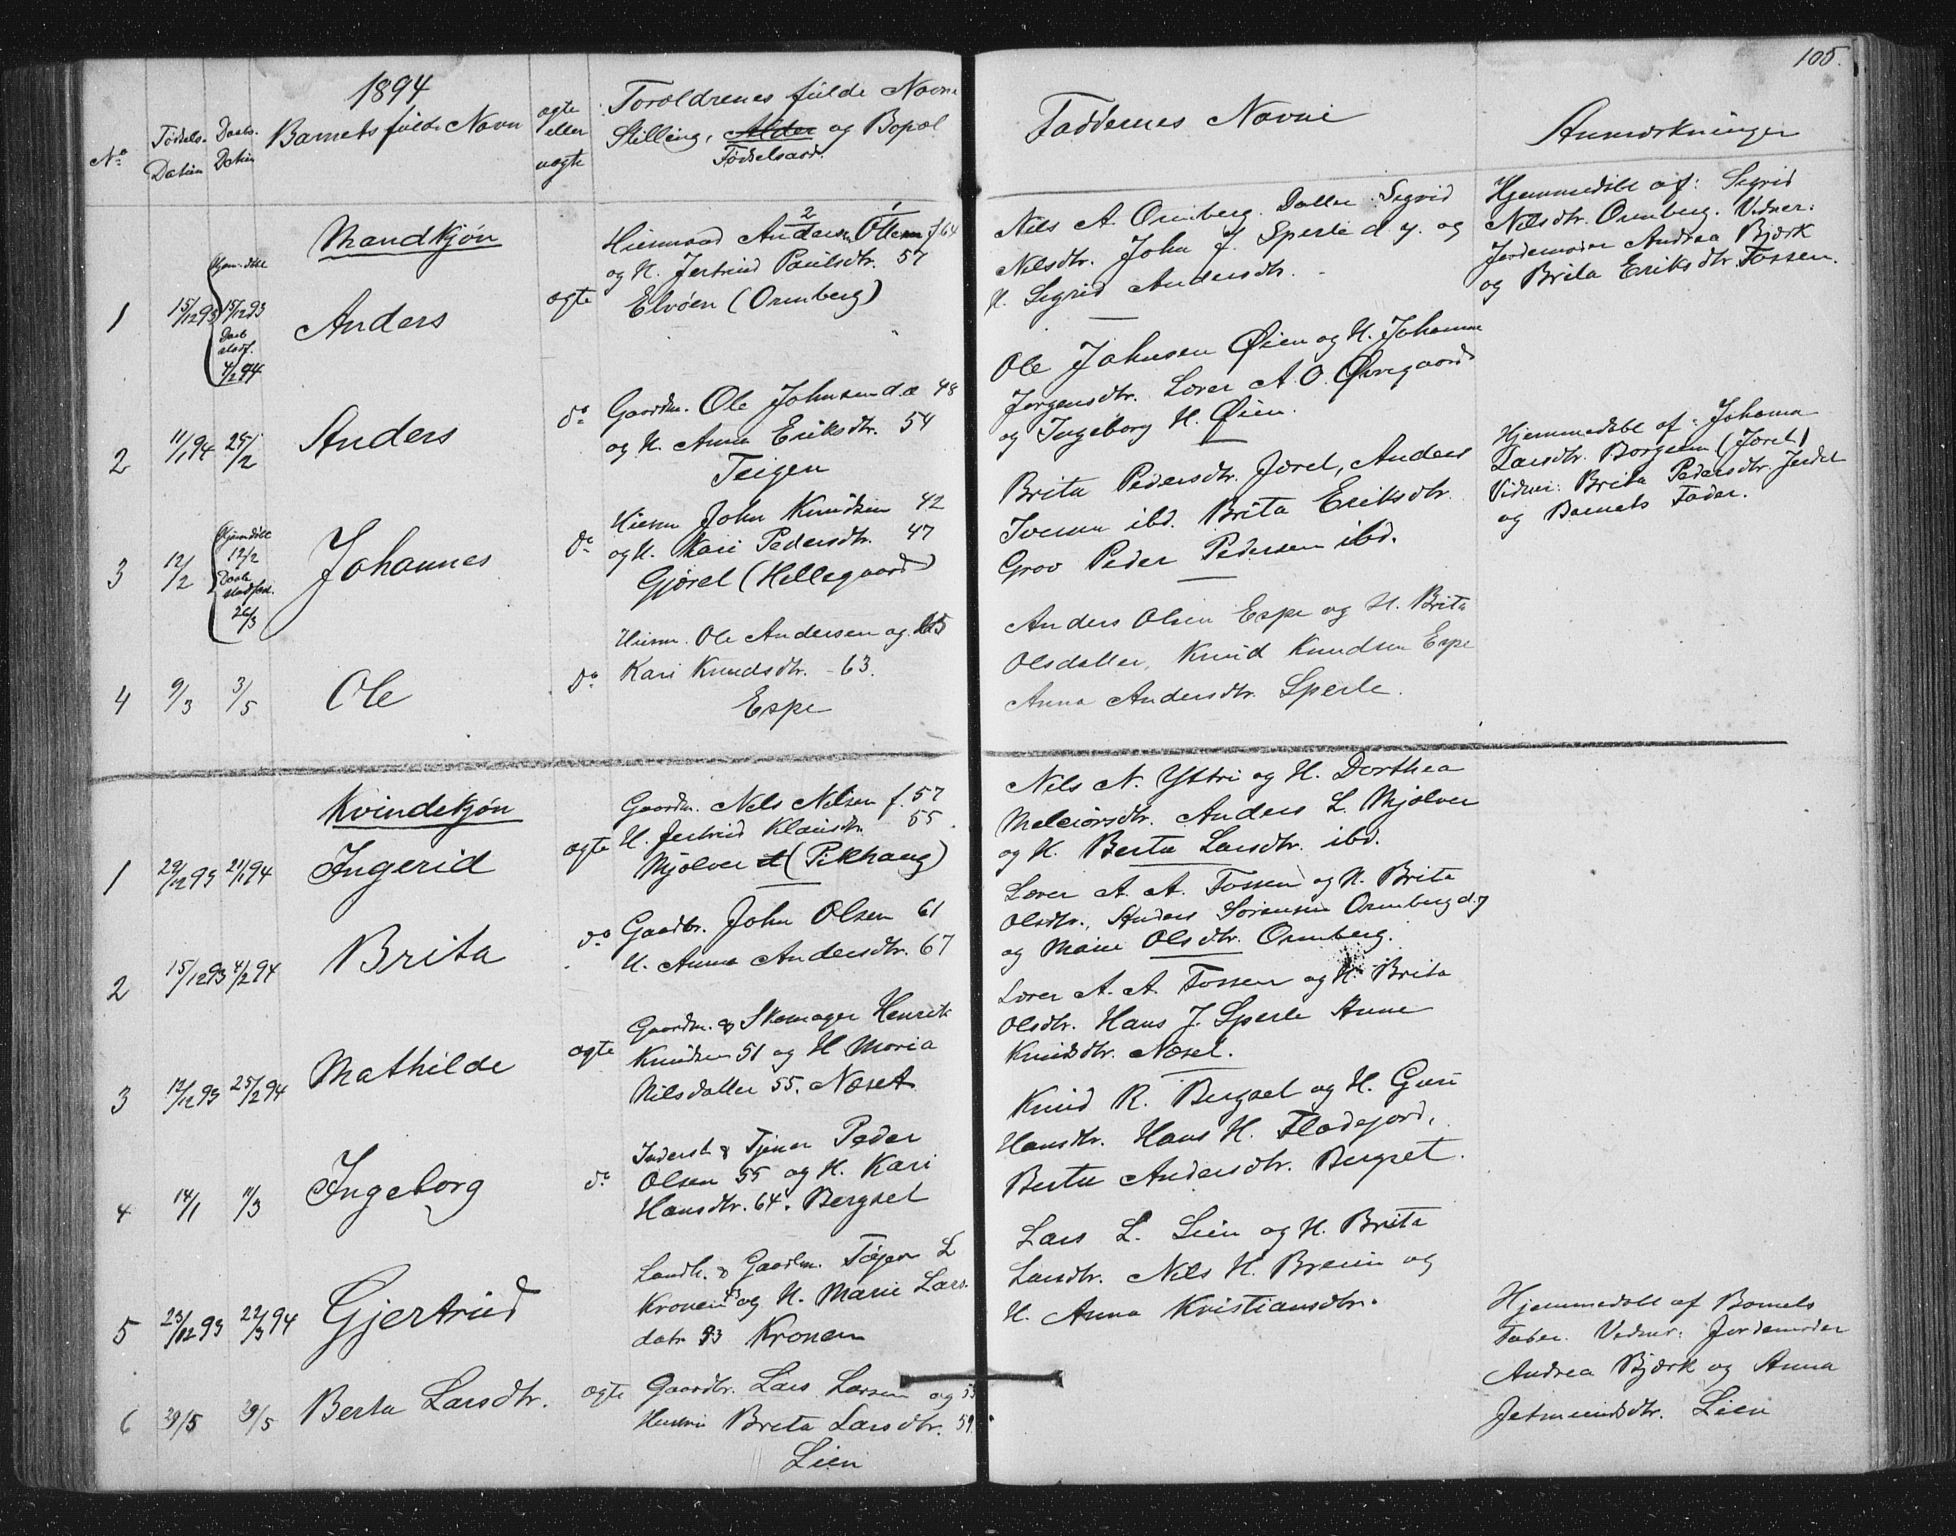 105.
1894
No
Fødsels-
Datum
Daabs-
Datum
Barnets fulde Navn
ægte
eller
uægte
Forældrenes fulde Navne
Stilling, Alder og Bopæl
Fødselsaar.
Mandkjøn
1
15/12 93
Hjemdøbt
15/12 93
Daab
stadf.
4/2 94
Anders
ægte
Huusmand Andersen Ottesen f 64
og H. Jertrud Paulsdtr. 57
Elvøen (Ormberg)
2
11/1 94
25/2
Anders
do
Gaardm. Ole Johnsen d.æ 48
og H. Anna Eriksdtr. 54
Teigen
3
12/2
Hjemdøbt
12/2
Daab
stadfæst.
26/3
Johannes
do
Huusm John Knudsen 42
og H. Kari Pedersdtr. 47
Gjørel (Hellegaard)
4
9/3
3/5
Ole
do
Huusm. Ole Andersen og 65
Kari Knudsdtr. - 63.
Espe
Kvindekjøn
1
29/12 93
21/1 94
Ingerid
ægte
Gaardm. Nels Nelsen f. 57
H. Jertrud Klausdtr. 55.
Mjølver (Pikhaug)
2
15/12 93
4/2 94
Brita
do
Gaardbr. John Olsen 61
H. Anna Andersdtr. 67
3
12/12 93
25/2 94
Mathilde
ægte
Gaardm. & Skomager Henrik
Knudsen 51 og H Maria
Nilsdatter 55. Næset
4
14/1
11/3
Ingeborg
do
Inderst & Tjener Peder
Olsen 55 og H. Kari
Hansdtr. 64. Bergset
5
23/12 93
22/3 94
Gjertrud
Landh. & Gaardm. Tøger L
Kronen og H. Marie Lars-
datr 53 Kronen
6
29/5
29/5
Berta Larsdtr.
ægte
Gaardbr. Lars Larsen og 55
Hustru Brita Larsdtr. 59.
Lien
Faddernes Navne
Nils A. Ormberg. Datter Sigrid
Nelsdtr. John J. Sperle d y. og
H. Sigrid Andersdtr.
Ole Johnsen Øien og H. Johanne
Jørgensdtr. Lærer A. O. Øvregaard
og Ingeborg H. Øien.
Brita Pedersdtr. Jørel, Anders
Iversen ibd. Brita Eriksdtr.
Grov Peder Pedersen ibd.
Anders Olsen Espe og H. Brita
Olsdatter, Knud Knudsen Espe
Anna Andersdtr. Sperle.
Nels N. Yttri og H. Dorthea
Melciorsdtr. Anders L. Mjølver
og H. Berta Larsdtr. ibd.
Lærer A. A. Fossen og H. Brita
Olsdtr., Anders Sørensen Ormberg d.y
og Marie Olsdtr. Ormberg.
Lærer A. A. Fossen og H. Brita
Olsdtr. Hans J. Sperle Anne
Knudsdtr. Næset.
Knud R. Bergset og H. Guri
Hansdtr. Hans H. Fladejord,
Berta Andersdtr. Bergset.
Lars L. Lien og H. Brita
Larsdtr. Nils H. Breum og
H. Anna Kristiansdtr.
Anmærkninger
Hjemmedøbt af: Sigrid
Nilsdtr. Ormberg. Vidner:
Jordemoder Andrea Bjørk
og Brita Eriksdtr. Fossen.
Hjemmedøbt af: Johanna
Larsdtr. Borgeim (Jørel)
Vidner: Brita Pedersdtr. Jørdel
og Barnets Fader.
Hjemmedøbt af Barnets
Fader. Vidner: Jordemoder
Andrea Bjørk og Anna
Jetmundsdtr. Lien